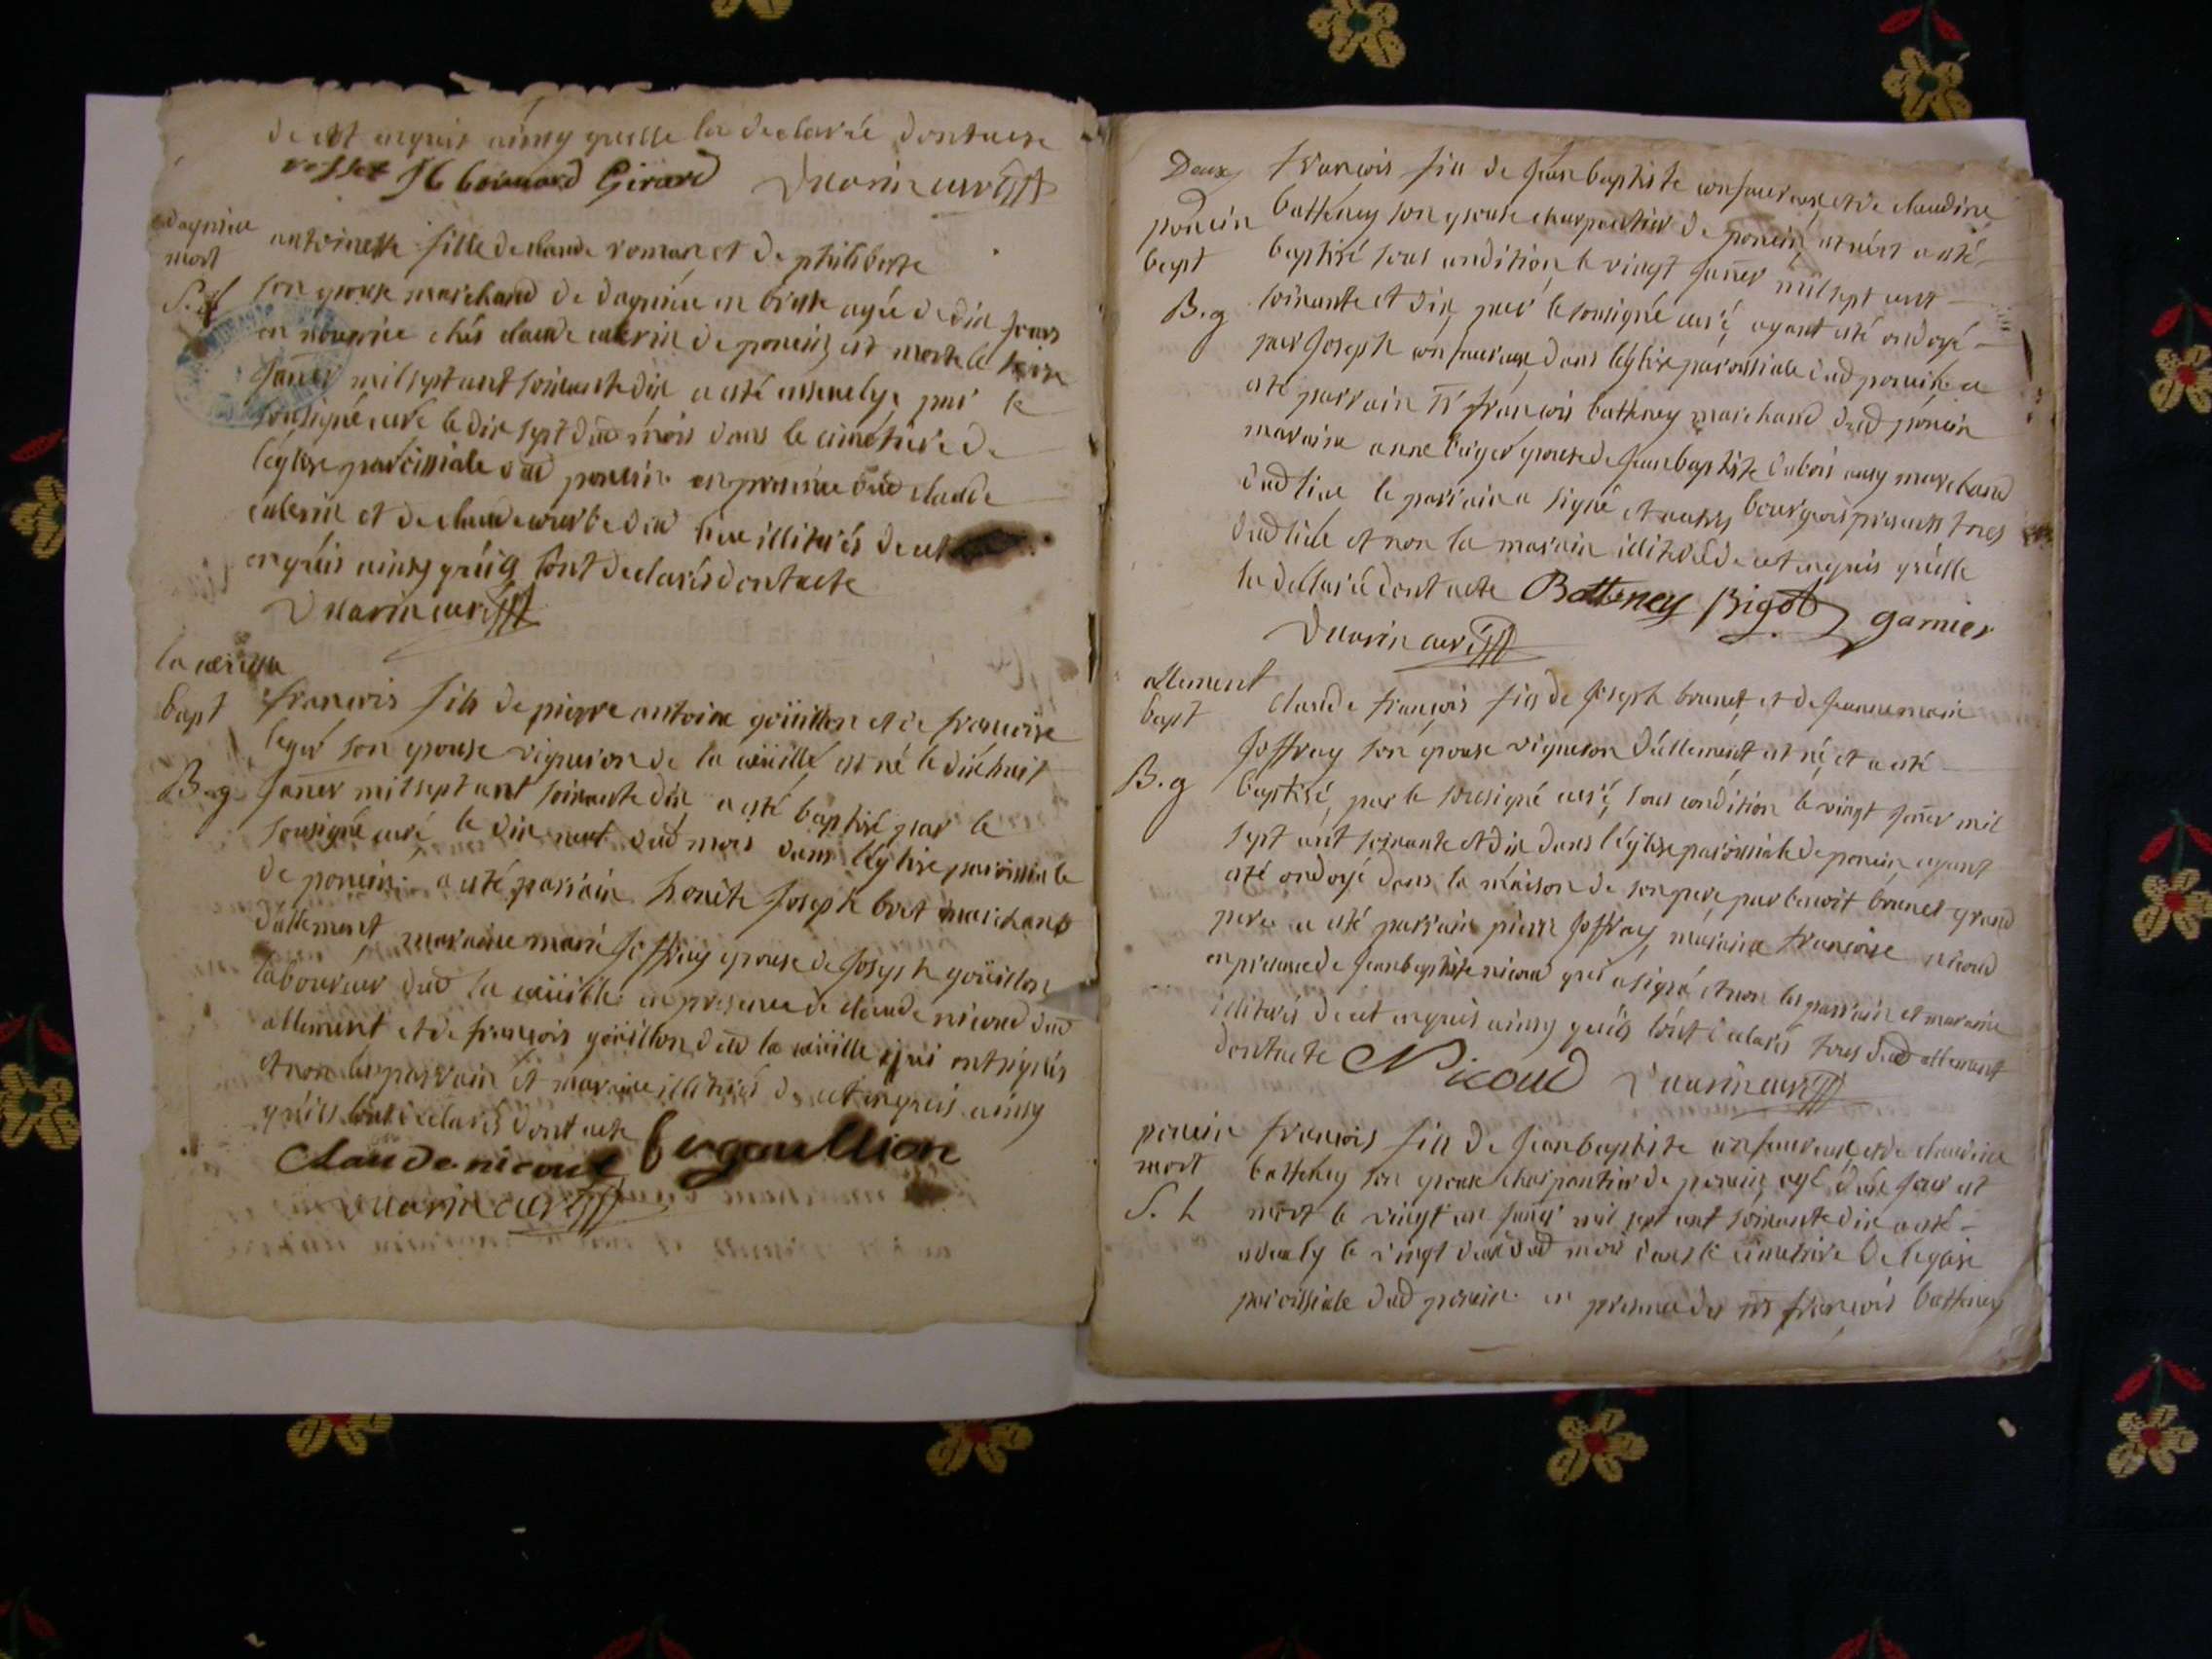 de cet enquis ainsy quelle la declarée dont acte
rosset JC bouvard Girard Duarin curé
dagnieu
mort
S. f
antoinette fille de claude roman et de philiberte
son epouse marchand de dagnieu en bresse agée de dix jours
en nourrice chés claude caterin de poncin, est morte le seize
janer mil sept cent soixante dix a esté ensevelye par le
sousigné curé le dix sept dud mois dans le cimetiere de
l'eglise paroissiale dud poncin en presence dud claude
caterin et de claude dud lieu illiterés de cet
enquis ainsy qu'ils l'ont declarés dont acte
Duarin curé
la cueille
bapt
B. g
françois fils de pierre antoine goüillon et de françoise
leger son epouse vigneron de la cuëille est né le dixhuit
janer mil sept cent soixante dix a esté baptisé par le
sousigné curé le dix neuf dud mois dans l'eglise paroissiale
de poncin. a esté parrain honête joseph bret marchand
d'allement maraine marie joffray epouse de joseph goüillon
laboureur dud la cuëille en presence de claude nicoud dud
allement et de françois goüillon dud la cuëille qui ont signés
et non les parrain et maraine illiterés de cet enquis ainsy
qu'ils l'ont declarés dont acte
Claude nicoud f gouillion
Duarin curé
Deux
poncin
bapt
B. g
françois fils de jean baptiste confavreux, et de claudine
batteney son epouse charpentier de poncin, est né et a esté
baptisé sous condition le vingt janer mil sept cent
soixante et dix, par le sousigné curé, ayant esté ondoyé
par joseph confavreux, dans l'eglise paroissiale dud poncin. a
esté parrain sr françois batteney marchand dud poncin
maraine anne epouse de jean baptiste dubois aussy marchand
dud lieu le parrain a signé et autres bourgeois presents tous
dud lieu et non la maraine illiterée de cet enquis qu'elle
la declaré dont acte Batteney Bigot garnier
Duarin curé
allement
bapt
B. g
claude françois fils de joseph brunet, et de jeanne marie
joffray son epouse vigneron d'allement, est né, et a esté
baptisé, par le sousigné curé, sous condition le vingt janer mil
sept cent soixante et dix dans l'eglise paroissiale de poncin ayant
esté ondoyé dans la maison de son pere par benoit brunet grand
pere. a esté parrain pierre joffray, maraine françoise nicoud
en presence de jean baptiste nicoud qui a signé et non les parrain et maraine
illiterés de cet enquis ainsy qu'ils l'ont declarés tous dud allement
dont acte Nicoud Duarin curé
poncin
mort
S. h
françois fils de jean baptiste confavreux, et de claudine
batteney son epouse charpentier de poncin, agé d'un jour est
mort le vingt un janer mil sept cent soixante dix a esté
ensevely le vingt deux dud mois dans le cimetiere de l'eglise
paroissiale dud poncin. en presence des sr françois batteney